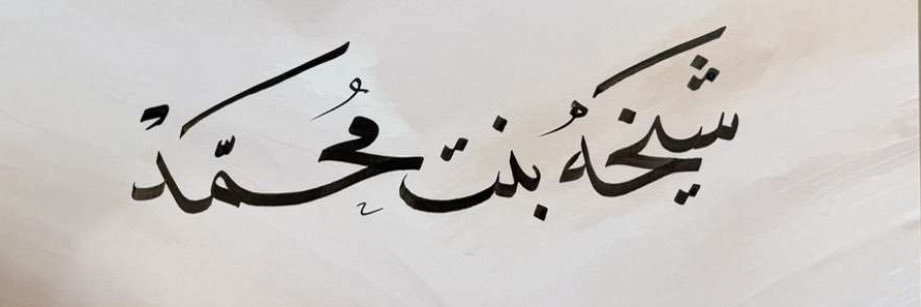 شيخهُ بنت مُحمّدْ